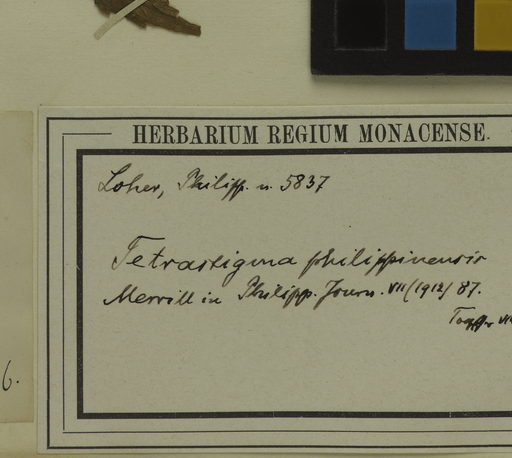 HERBARIUM REGIUM MONACENSE.
Loher, Philipp. n. 5837
Tetrastigma philippinensis
Merrill in Philipp. Journ. VII (1912) 87.
6.